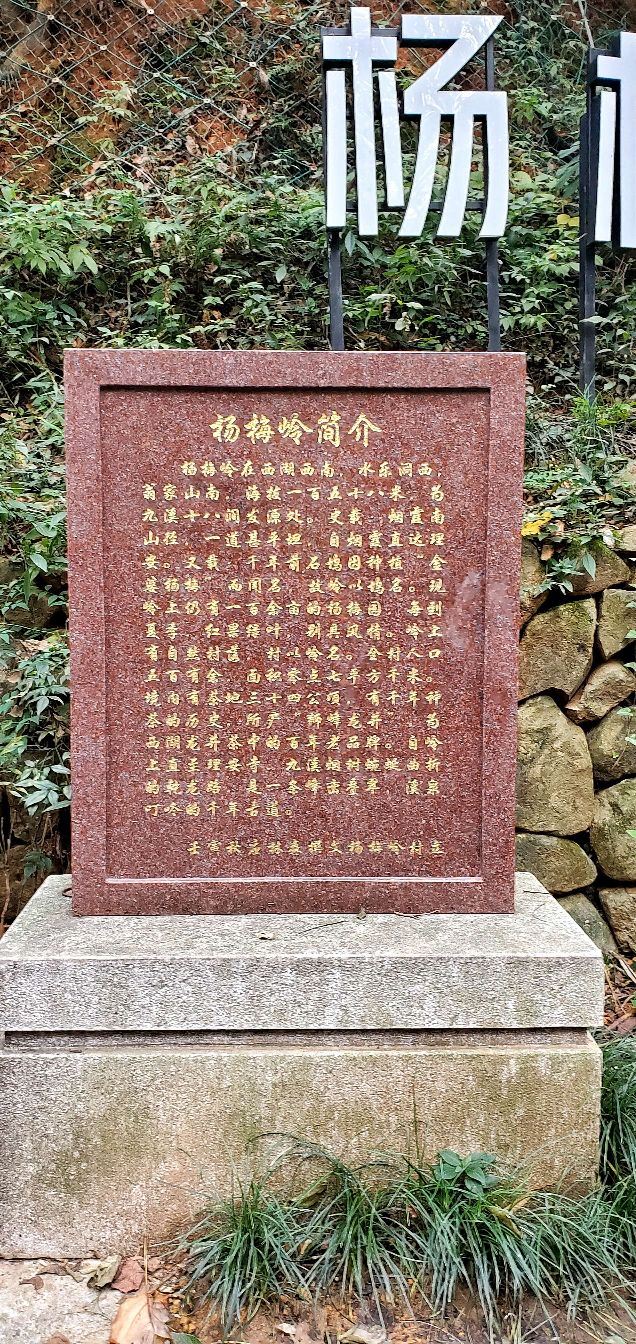 杨
杨梅岭简介
杨梅岭在西湖西南，水乐洞西，
翁家山南，海拔一百五十八米，为
九溪十八涧发源处。史载，烟霞南
山径，一道悬平坦，自烟霞直达理
安。又载，千年前，石坞因种植“金
婆杨梅”而闻名，故岭以坞名。现
岭上仍有一百余亩的杨梅园，每到
夏季，红果绿叶，别具风情。岭上
有自然村落，村以岭名。全村人口
五百有余，面积七平方千米，
境内有茶地三十四公顷，有千年种
茶的历史，所产“狮峰龙井”，为
西湖龙井茶中的百年老品牌。自岭
上直至理安寺，九溪烟树蜿蜒曲折
的乾龙路是一条峰峦叠翠，溪泉
叮咚的千年古道。
壬寅秋 撰文杨梅岭村立